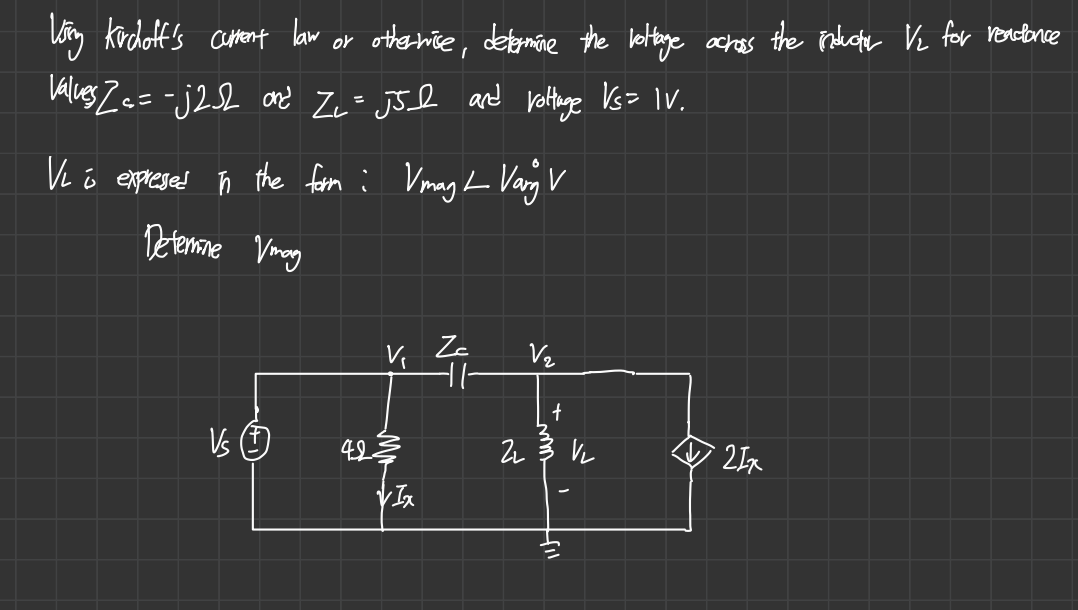 Using kirchoff's current law or otherwise, determine the voltage across the inductor VL for reactance
values Zc = -j2Ω and ZL = j5Ω and voltage Vs = 1V.
VL is expressed in the form : Vmag ∠ Varg° V
Determine Vmag
V1 Zc V2
Vs + - 4Ω ZL + VL - 2Ix
Ix